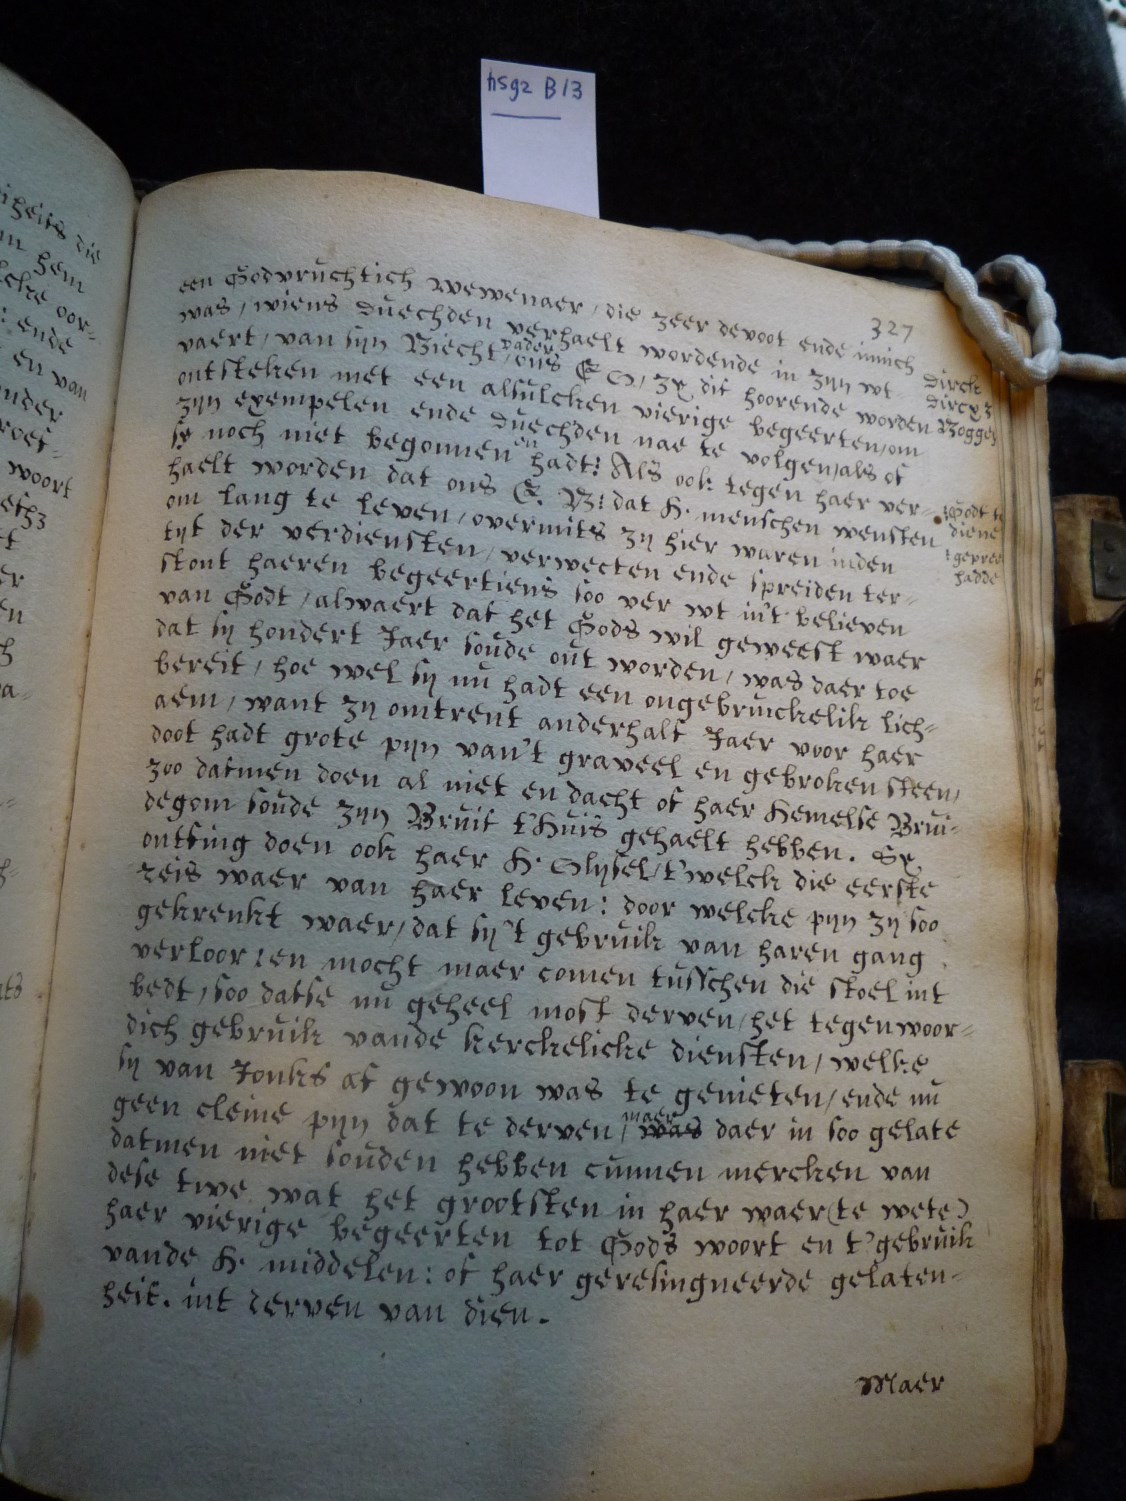 hsgz B13
327
een Godvruchtich wewenaer, die zeer devoot ende innich
was, wiens duechden verhaelt wordende in zijn wt-
vaert, van sijn Biecht vader, ons E S, zy dit hoorende worden
ontsteken met een alsulcken vierige begeerten, om
zijn exempelen ende duechden nae te volgen, als of
sy noch niet begonnen en hadt: Als ook tegen haer ver-
haelt worden dat ons E. B: dat H. menschen wensten
om lang te leven, overmits zij hier waren inden
tijt der verdiensten, verwecten ende spreiden ter-
stont haeren begeertiens soo ver wt in't believen
van Godt, alwaert dat het Gods wil geweest waer
dat sij hondert Jaer soude out worden, was daer toe
bereit, hoe wel sij nu hadt een ongebruickelik lich-
aem, want zij omtrent anderhalf Jaer voor haer
doot hadt grote pijn van't graveel en gebroken steen,
zoo datmen doen al niet en dacht of haer Hemelse Brui-
degom soude zijn Bruit t'huis gehaelt hebben. Sy
ontfing doen ook haer H. Olijsel, t'welck die eerste
reis waer van haer leven: door welcke pijn zij soo
gekrenkt waer, dat sij 't gebruik van haren gang
verloor en mocht maer comen tusschen die stoel int
bedt, soo datse nu geheel most derven, het tegenwoor-
dich gebruik vande kerckelicke diensten, welke
sij van Jonks af gewoon was te genieten, ende nu
geen cleine pijn dat te derven, maer was daer in soo gelate
datmen niet souden hebben cunnen mercken van
dese twe wat het grootsten in haer waer (te wete)
haer vierige begeerten tot Gods woort en t'gebruik
vande H. middelen: of haer geresingneerde gelaten-
heit. int derven van dien.
Maer
Dirck
Dircxz
Bogges
Godt te
diene
hadde